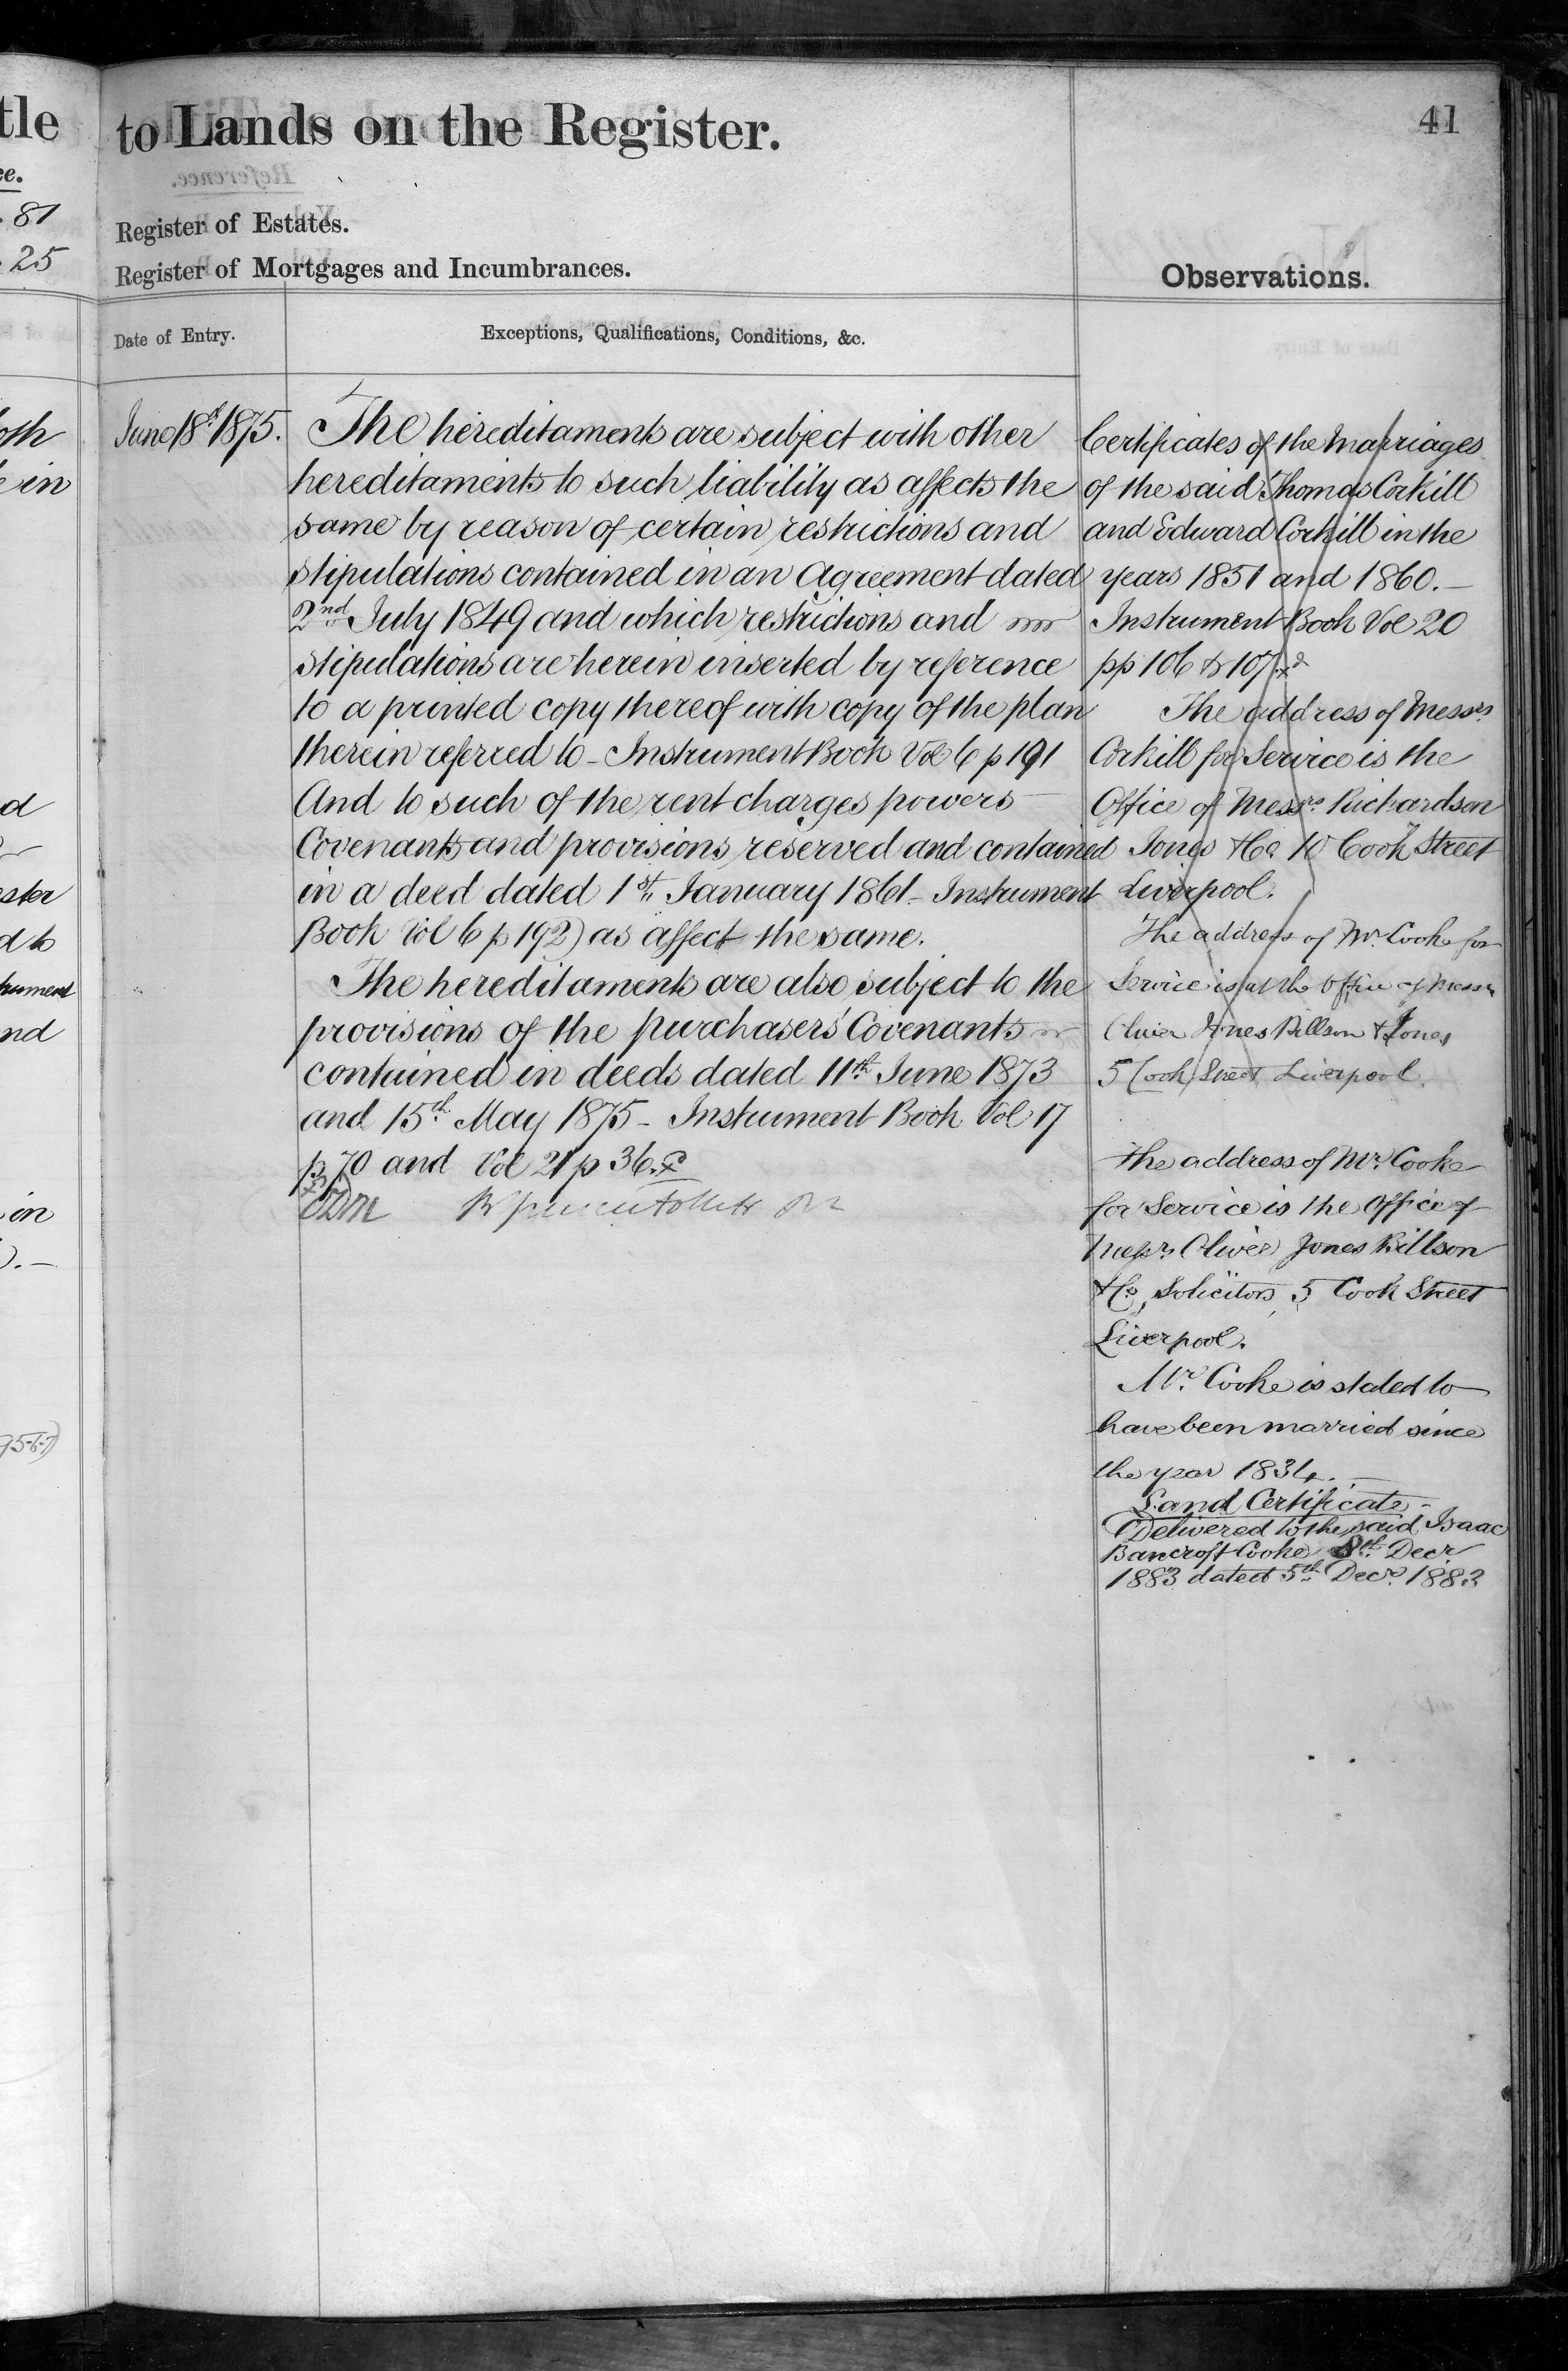 tle
ce.
. 81
. 25
oth
e in
d
ester
d to
trument
nd
in
).—
41
to Lands on the Register.
Register of Estates.
Register of Mortgages and Incumbrances.
Observations.
Date of Entry.
Exceptions, Qualifications, Conditions, &c.
June 18th 1875.
The hereditaments are subject with other
hereditaments to such liability as affects the
same by reason of certain restrictions and
stipulations contained in an Agreement dated
2nd July 1849 and which restrictions and
stipulations are herein inserted by reference
to a printed copy thereof with copy of the plan
therein referred to - Instrument Book Vol 6 p 191
And to such of the rent charges powers
Covenants and provisions reserved and contained
in a deed dated 1st January 1861 - Instrument
Book Vol 6 p 192) as affect the same.
The hereditaments are also subject to the
provisions of the purchasers' Covenants
contained in deeds dated 11th June 1873
and 15th May 1875 - Instrument Book Vol 17
p 70 and Vol 21 p 36.
Certificates of the Marriages
of the said Thomas Corkill
and Edward Corkill in the
years 1851 and 1860. —
Instrument Book Vol 20
pp 106 & 107.
The address of Messrs
Corkill for Service is the
Office of Messrs Richardson
Jones & Co 10 Cook Street
Liverpool.
The address of Mr Cooke for
Service is at the Office of Messrs
Oliver Jones Billson & Jones
5 Cook Street Liverpool.
The address of Mr. Cooke
for Service is the Office of
Messrs Oliver Jones Billson
& Co, Solicitors, 5 Cook Street
Liverpool.
Mr. Cooke is stated to
have been married since
the year 1834. —
Land Certificate -
Delivered to the said Isaac
Bancroft Cooke 8th Decr
1883 dated 5th Decr. 1883